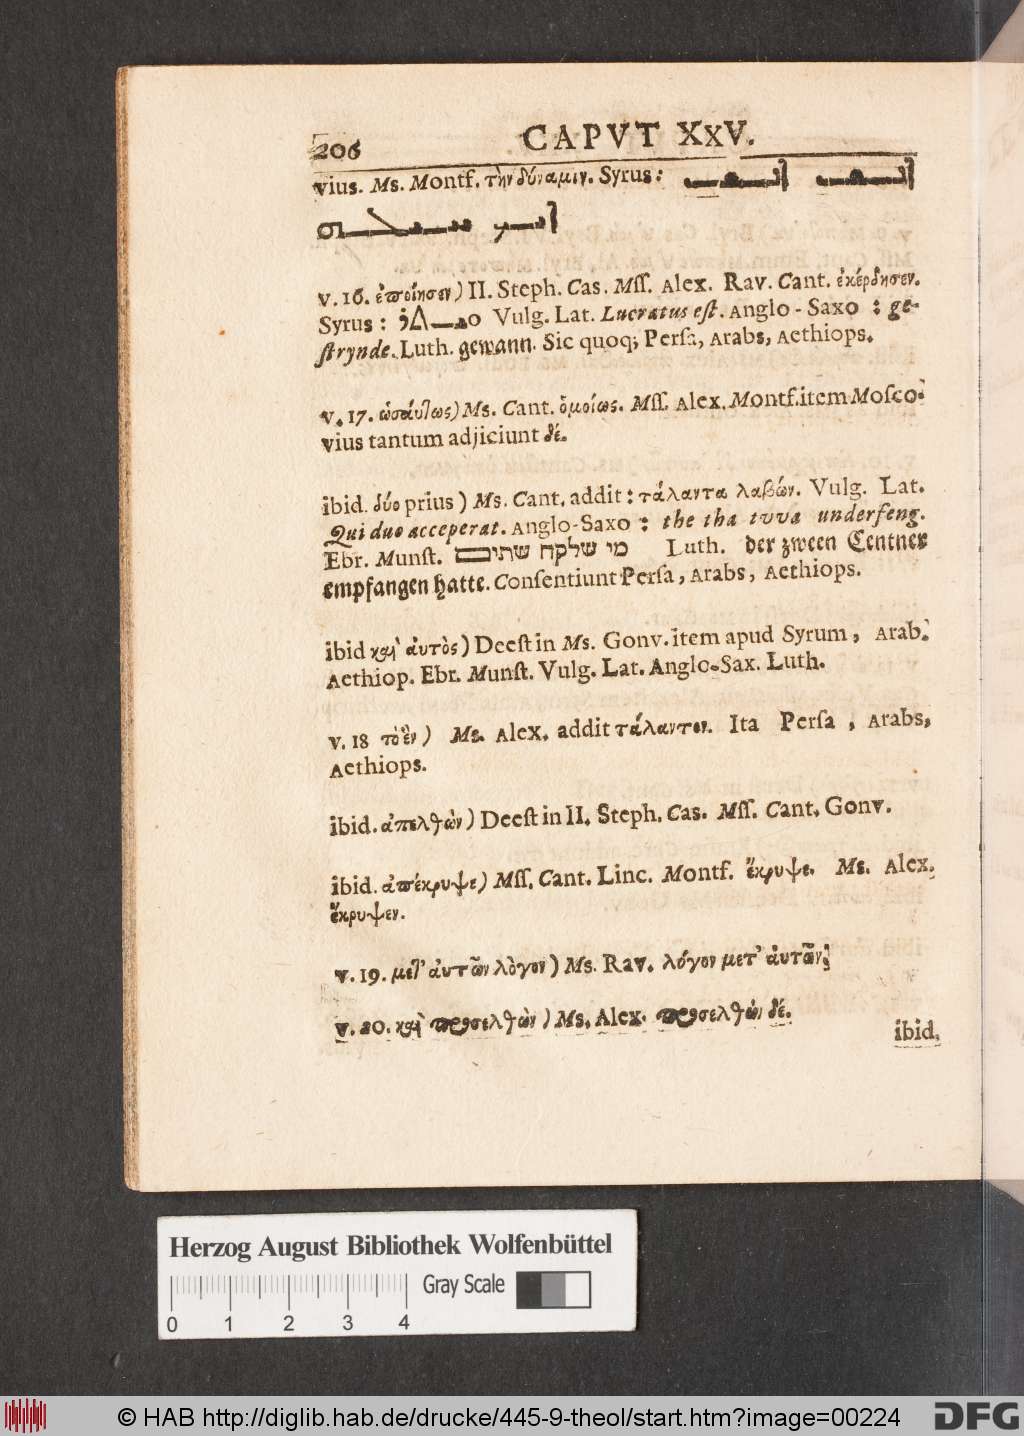 206 CAPVT XXV.
vius. Ms. Montf. τὴν δύναμιν. Syrus:
v. 16. ἐποίησεν) II. Steph. Cas. Mſſ. Alex. Rav. Cant. ἐκέρδησεν.
Syrus: Vulg. Lat. Lucratus eſt. Anglo-Saxo: ge-
ſtrynde. Luth. gewann. Sic quoq; Perſa, Arabs, Aethiops.
v. 17. ὡσάυτως) Ms. Cant. ὁμοίως. Mſſ. Alex. Montf. item Moſco-
vius tantum adjiciunt δέ.
ibid. δύο prius) Ms. Cant. addit: τάλαντα λαβών. Vulg. Lat.
Qui duo acceperat. Anglo-Saxo: the tha tvva underfeng.
Ebr. Munſt. מי שלקח שתים Luth. der zween Centner
empfangen hatte. Conſentiunt Perſa, Arabs, Aethiops.
ibid καὶ ἀυτὸς) Deeſt in Ms. Gonv. item apud Syrum, Arab.
Aethiop. Ebr. Munſt. Vulg. Lat. Anglo-Sax. Luth.
v. 18 τὸ ἓν) Ms. Alex. addit τάλαντον. Ita Perſa, Arabs,
Aethiops.
ibid. ἀπελθὼν) Deeſt in II. Steph. Cas. Mſſ. Cant. Gonv.
ibid. ἀπέκρυψε) Mſſ. Cant. Linc. Montf. ἔκρυψε. Ms. Alex.
ἔκρυψεν.
v. 19. μετ' ἀυτῶν λόγον) Ms. Rav. λόγον μετ' ἀυτῶν.
v. 20. καὶ προσελθὼν) Ms. Alex. προσελθὼν δέ.
ibid.
Herzog August Bibliothek Wolfenbüttel
Gray Scale
0 1 2 3 4
© HAB http://diglib.hab.de/drucke/445-9-theol/start.htm?image=00224 DFG